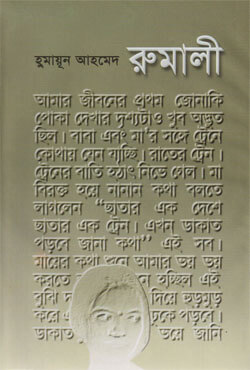 হুমায়ূন আহমেদ
রুমালী
আমার জীবনের প্রথম জোনাকি
পোকা দেখার দৃশ্যটাও খুব অদ্ভুত
ছিল। বাবা এবং মা'র সঙ্গে ট্রেনে
কোথায় যেন যাচ্ছি। রাতের ট্রেন।
ট্রেনের বাতি হঠাৎ নিভে গেল। মা
বিরক্ত হয়ে নানান কথা বলতে
লাগলেন “ছাতার এক দেশে
ছাতার এক ট্রেন। এখন ডাকাত
পড়বে জানা কথা” এই সব।
মায়ের কথা শুনে আমার ভয় ভয়
করতে হচ্ছিল এই
বুঝি দিয়ে হুড়মুড়
করে ঢুকে পড়বে।
ডাকাত ভয়ে জানি